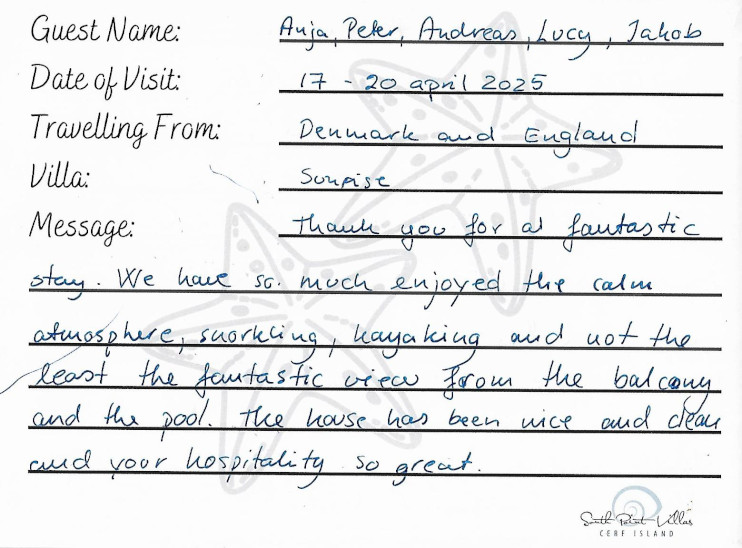 Guest Name: Anja, Peter, Andreas, Lucy, Jakob
Date of Visit: 17 - 20 april 2025
Travelling From: Denmark and England
Villa: Sunrise
Message: Thank you for a fantastic
stay. We have so much enjoyed the calm
atmosphere, snorkling, kayaking and not the
least the fantastic view from the balcony
and the pool. The house has been nice and clean
and your hospitality so great.
South Point Villas
CERF ISLAND